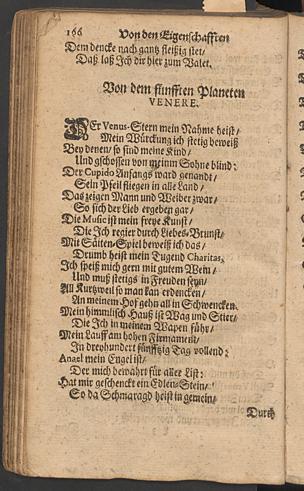 166 Von den Eigenschafften
Dem dencke nach gantz fleißig stet/
Daß laß Ich dir hier zum Valet.
Von dem fünfften Planeten
VENERE.
DEr Venus-Stern mein Nahme heist/
Mein Würckung ich stetig beweiß
Bey denen/ so sind meine Kind/
Und gschossen von meinm Sohne blind:
Der Cupido Anfangs ward genandt/
Sein Pfeil fliegen in alle Land/
Das zeigen Mann und Weiber zwar/
So sich der Lieb ergeben gar/
Die Music ist mein freye Kunst/
Die Ich regier durch Liebes-Brunst/
Mit Säiten-Spiel beweiß ich das/
Drumb heist mein Tugend Charitas,
Ich speiß mich gern mit gutem Wein/
Und muß stetigs in Freuden seyn/
All Kurtzweil so man kan erdencken/
An meinem Hof gehn all in Schwencken.
Mein himmlisch Hauß ist Wag und Stier/
Die Ich in meinem Wapen führ/
Mein Lauff am hohen Firmament/
In dreyhundert fünfftzig Tag vollend:
Anael mein Engel ist/
Der mich bewahrt für aller List:
Hat mir geschenckt ein Edlen-Stein/
So da Schmaragd heist in gemein/
Durch